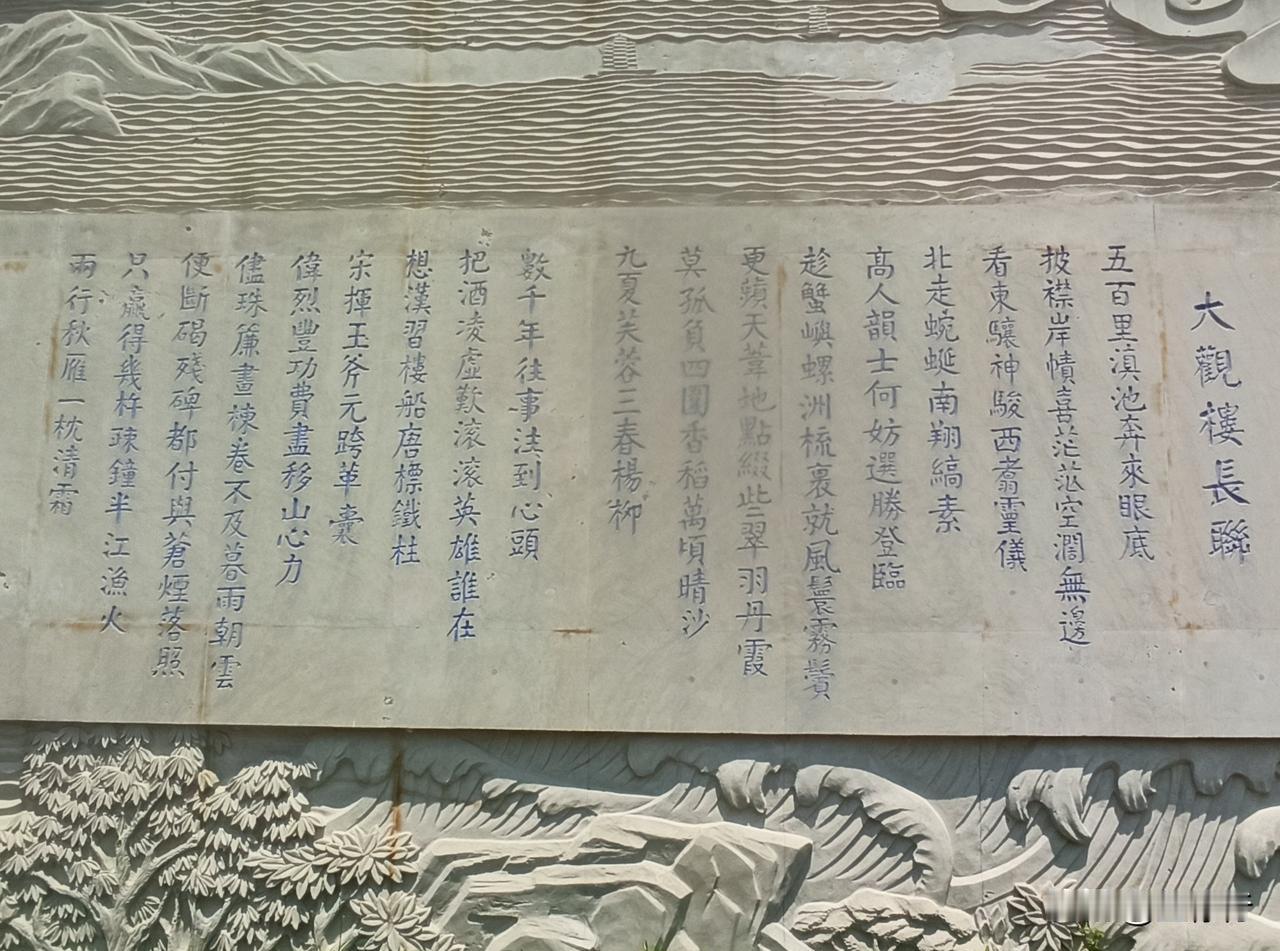 大觀樓長聯
五百里滇池奔來眼底
披襟岸幘喜茫茫空濶無邊
看東驤神駿西翥靈儀
北走蜿蜒南翔縞素
高人韻士何妨選勝登臨
趁蟹嶼螺洲梳裏就風鬟霧鬢
更蘋天葦地點綴些翠羽丹霞
莫孤負四圍香稻萬頃晴沙
九夏芙蓉三春楊柳
數千年往事注到心頭
把酒凌虛歎滚滚英雄誰在
想漢習樓船唐標鐵柱
宋揮玉斧元跨革囊
偉烈豐功費盡移山心力
儘珠簾畫棟卷不及暮雨朝雲
便斷碣殘碑都付與蒼煙落照
只贏得幾杵疎鐘半江漁火
兩行秋雁一枕清霜